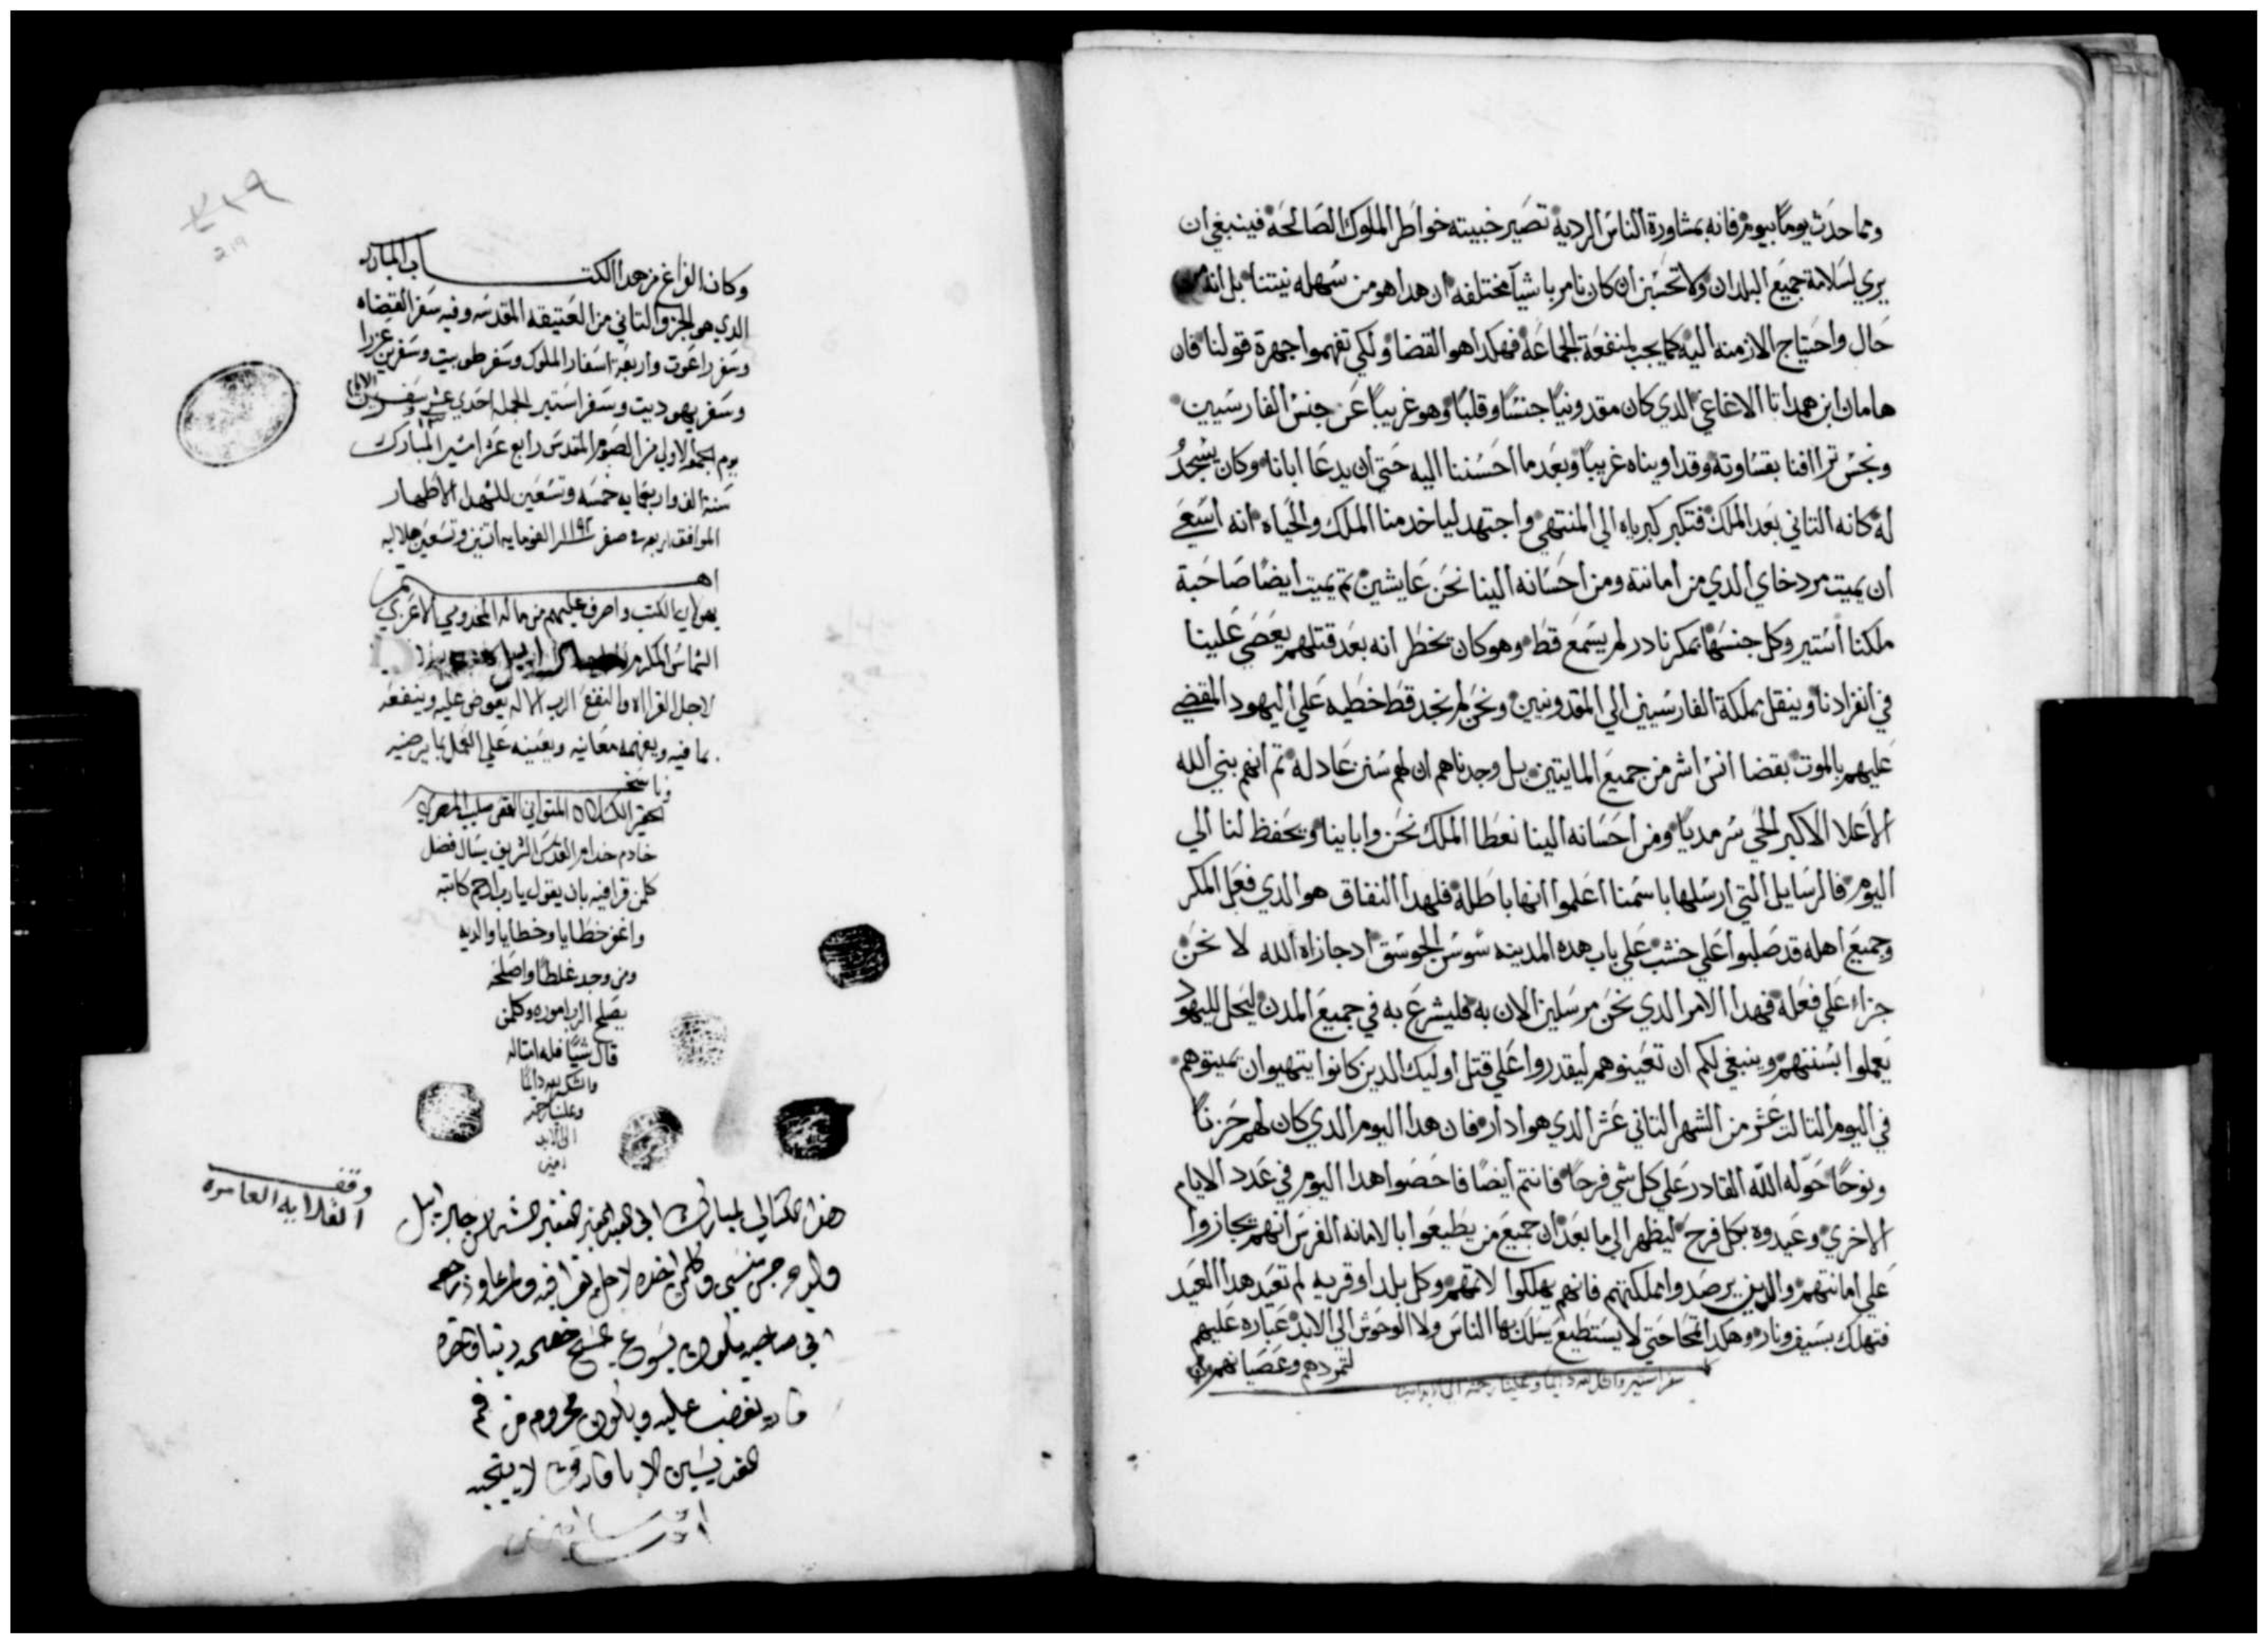 ومما حدث يوما بيوم فانه بمشاورة الناس الرديه تصير خبيته خواطر الملوك الصالحة فينبغي ان
يري لسلامة جميع البلدان ولا تحسبن ان كان نامر باشيا مختلفه ان هدا هو من سهله نيتنا بل انه
حال واحتياج الازمنه اليه كما يجب لمنفعة الجماعة فهكدا هو القضا ولكي تفهموا جهرة قولنا فان
هامان ابن همداتا الاغاغي الدي كان مقدونيا جنسا وقلبا وهو غريبا عن جنس الفارسيين
ونجس ترافنا بقساوته وقد اويناه غريبا وبعد ما احسننا اليه حتي ان يدعا ابانا وكان يسجد
له كانه التاني بعد الملك فتكبر كبرياه الي المنتهي واجتهد لياخد منا الملك والحياه انه اسعي
ان يميت مردخاي الدي من امانته ومن احسانه الينا نحن عايشين تم يميت ايضا صاحبة
ملكنا استير وكل جنسها بمكر نادر لم يسمع قط وهو كان يخطر انه بعد قتلهم يعصي علينا
في انفرادنا وينقل مملكة الفارسيين الي المقدونيين ونحن لم نجد قط خطيه علي اليهود المقضي
عليهم بالموت بقضا انس اشر من جميع المايتين بل وجدناهم ان لهم سنن عادله تم انهم بني الله
الاعلا الاكبر الحي سرمديا ومن احسانه الينا نعطا الملك نحن وابابينا ويحفظ لنا الي
اليوم فالرسايل التي ارسلها باسمنا اعلموا انها باطله فلهدا النفاق هو الدي فعل المكر
وجميع اهله قد صلبوا علي خشب علي باب هده المدينه سوس الجوسق اد جازاه الله لا نحن
جزاء علي فعله فهدا الامر الدي نحن مرسلين الان به فليشرع به في جميع المدن ليحل لليهود
يعملوا بسننهم وينبغي لكم ان تعينوهم ليقدروا علي قتل اوليك الدين كانوا يتهيوان يميتوهم
في اليوم التالت عشر من الشهر التاني عشر الدي هو ادار فان هدا اليوم الدي كان لهم حزنا
ونوحا حوله الله القادر علي كل شي فرحا فانتم ايضا فاحصوا هدا اليوم في عدد الايام
الاخري وعيدوه بكل فرح ليظهر الي ما بعد ان جميع من يطيعوا بالامانه الفرس انهم يجازوا
علي امانتهم والدين يرصدوا مملكتهم فانهم يهلكوا لاتمهم وكل بلد او قريه لم تعيد هدا العيد
فتهلك بسيف ونار وهكدا تمحا حتي لا يستطيع يسلك بها الناس ولا الوحوش الي الابد عباره عليهم
لتمردهم وعصيانهم
سفر استير والشكر لله دايما وعلينا رحمته الي الابد امين
٢١٩
219
وكان الفراغ من هدا الكتاب المبارك
الدي هو الجزو التاني من العتيقه المقدسه وفيه سفر القضاه
وسفر راعوت واربعة اسفار الملوك وسفر طوبيت وسفرين عزرا
وسفر يهوديت وسفر استير الجمله احدي عشر سفر
يوم الجمعه الاولي من الصوم المقدس رابع عشر امشير المبارك
سنة الف واربعمايه خمسه وتسعين للشهدا الاطهار
الموافق اربعه في صفر ١١٩٢ الف ومايه اتنين وتسعين هلاليه
اهتم
بهولاي الكتب واصرف عليهم من ماله المخدومي الاعزي
الشماس المكرم
لاجل القراه والنفع الرب الاله يعوض عليه وينفعه
بما فيه ويفهمه معانيه ويعينه علي العمل بما يرضيه
وناسخه
الحقير الكسلان المتواني القس صليب المصري
خادم خدام القدس الشريف يسال فضل
كلمن قرا فيه بان يقول يارب ارحم كاتبه
واغفر خطايا وخطايا والديه
ومن وجد غلطا واصلحه
يصلح الرب اموره وكلمن
قال شيا فله امتاله
والشكر لله دايما
وعلينا رحمته
الي الابد
امين
وقف
القلايه العامره
هذا الكتاب المبارك الي العبد الحقير الفقير الشماس جبراييل
في صاحبه يكون يسوع المسيح خصمه
يغضب عليه ويكون محروم من فم
القديسين الابا